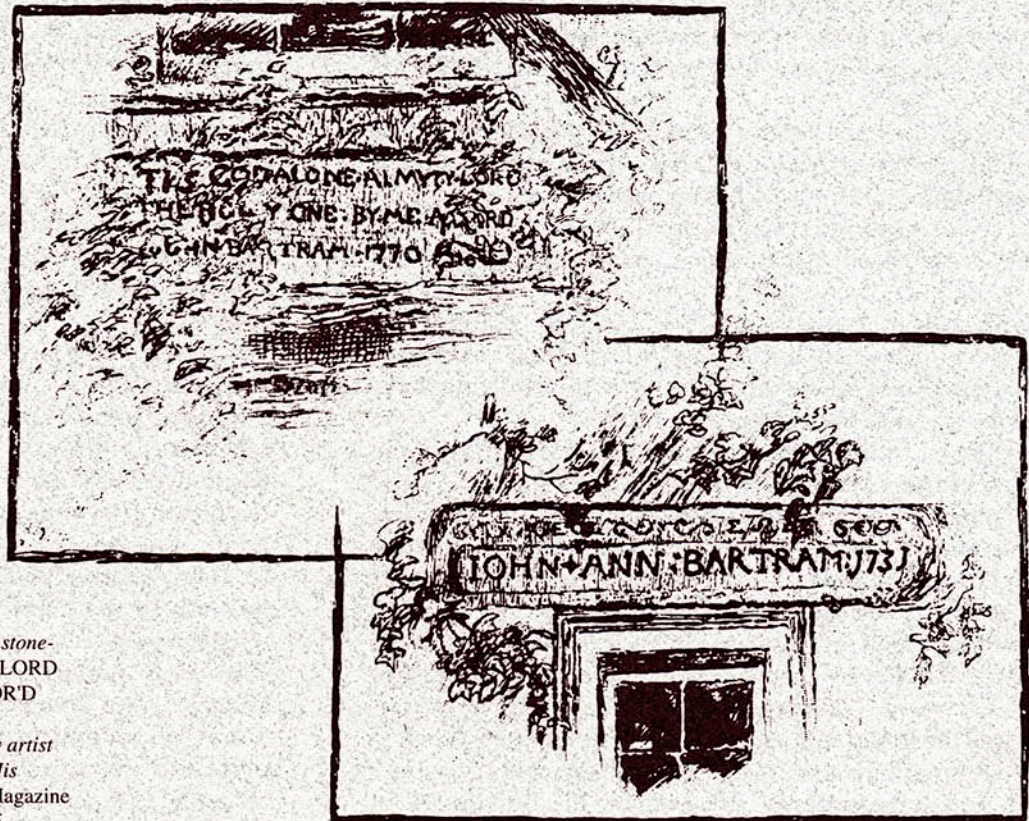 GOD ALONE ALMYTY LORD
THE HOLY ONE BY ME ADORD
IOHN BARTRAM 1770
IOHN + ANN : BARTRAM : 1731
stone-
LORD
OR'D
artist
His
Magazine